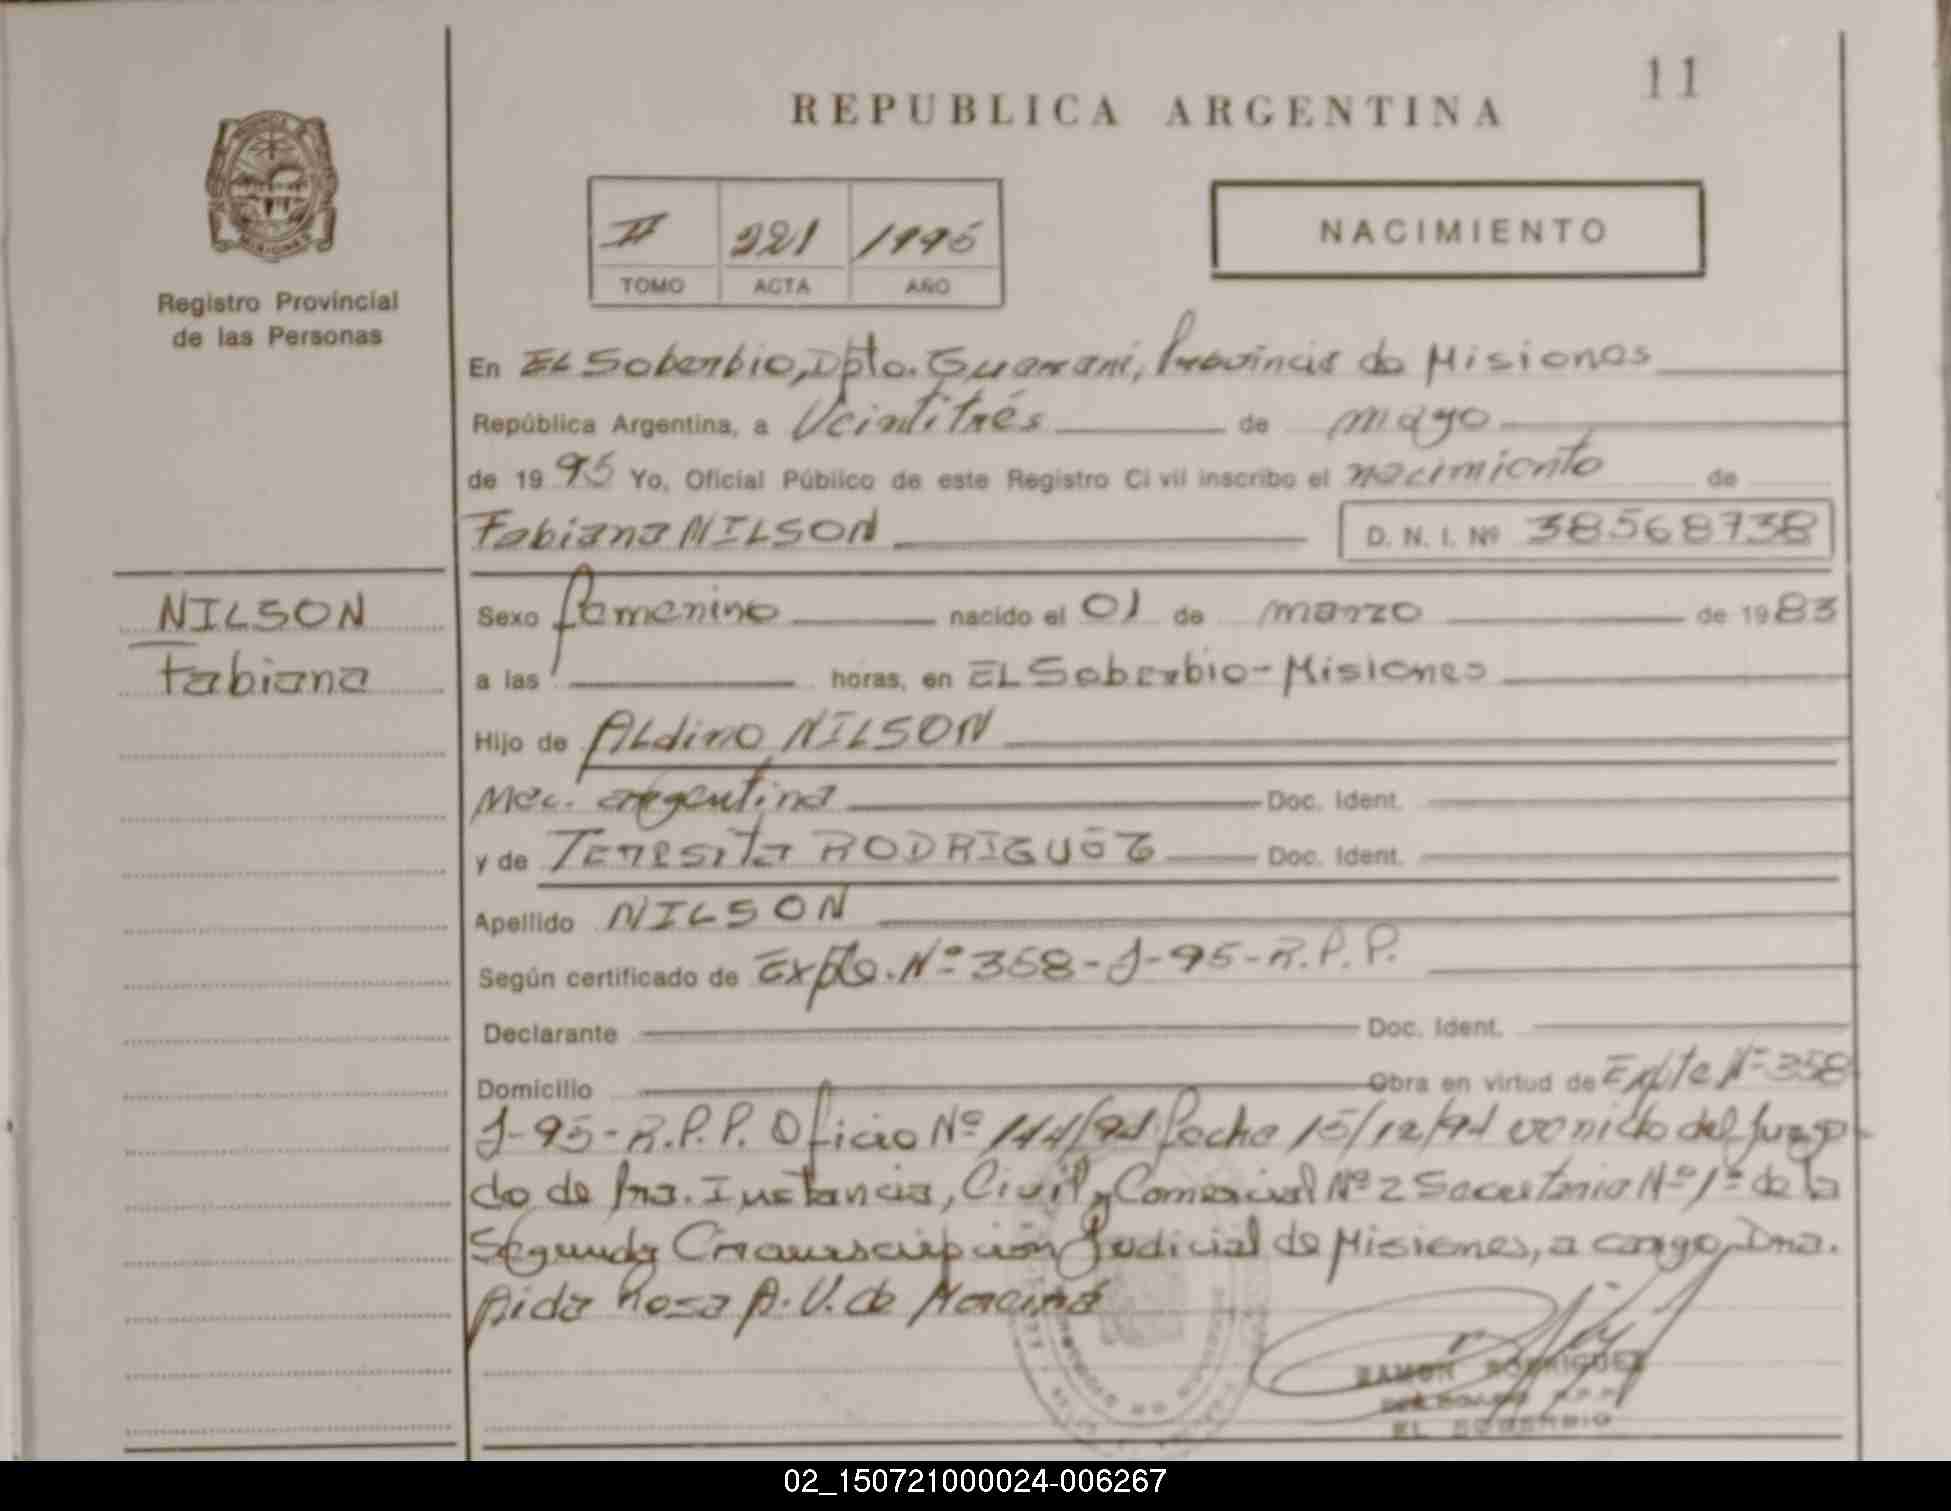 11
REPUBLICA ARGENTINA
MISIONES
Registro Provincial
de las Personas
II 221 1995
TOMO ACTA AÑO
NACIMIENTO
En EL Soberbio, Dpto. Guarani, Provincia de Misiones
República Argentina, a Veintitrés de mayo
de 1995 Yo, Oficial Público de este Registro Civil inscribo el nacimiento de
Fabiana NILSON D. N. I. Nº 38568738
NILSON
Fabiana
Sexo femenino nacido el 01 de marzo de 1983
a las horas, en EL Soberbio - Misiones
Hijo de ALdino NILSON
Nac. argentina Doc. Ident.
y de Teresita RODRIGUEZ Doc. Ident.
Apellido NILSON
Según certificado de Expte. Nº 358-J-95-R.P.P.
Declarante Doc. Ident.
Domicilio Obra en virtud de Expte Nº 358
J-95-R.P.P. Oficio Nº 144/94 fecha 15/12/94 venido del Juzga-
do de Pra. Instancia, Civil y Comercial Nº 2 Secretaria Nº 1º de la
Segunda Circunscripcion Judicial de Misiones, a cargo, Dra.
Aida Rosa A. V. de
RAMON RODRIGUEZ
EL SOBERBIO
02_150721000024-006267